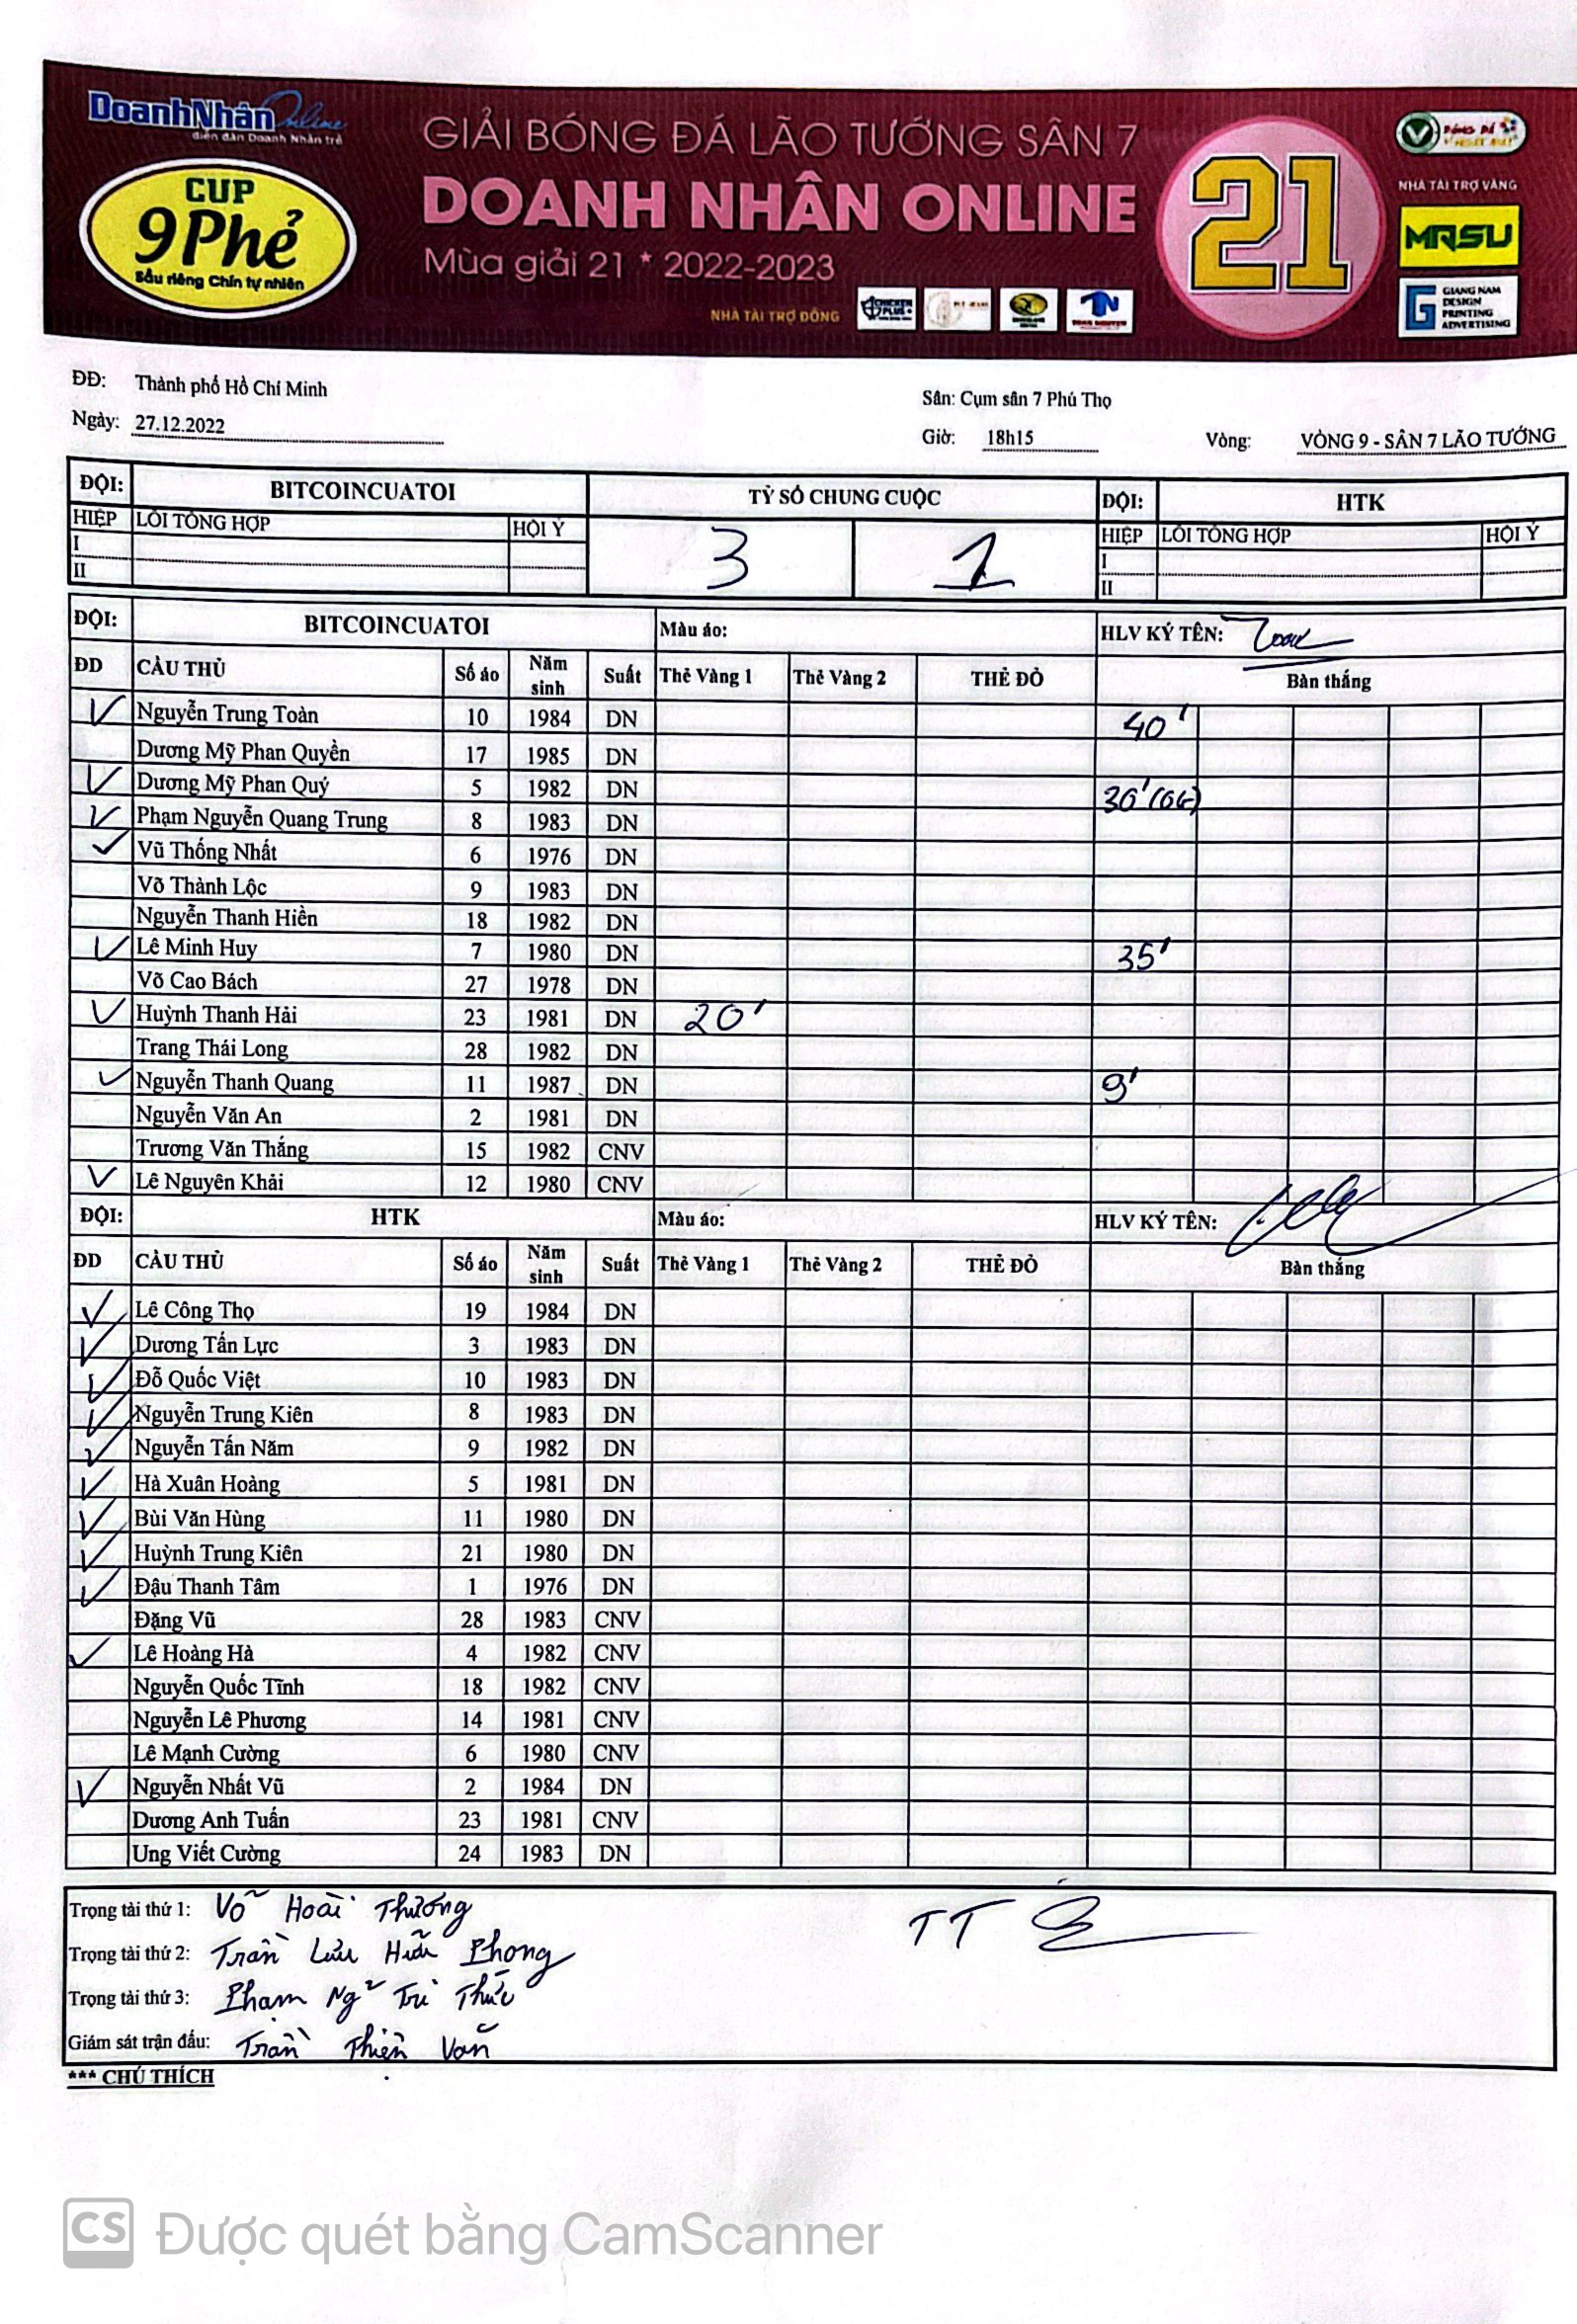 DoanhNhân Online
diễn đàn Doanh Nhân trẻ
CUP
9Phẻ
Sầu riêng Chín tự nhiên
GIẢI BÓNG ĐÁ LÃO TƯỚNG SÂN 7
DOANH NHÂN ONLINE
Mùa giải 21 * 2022-2023
NHÀ TÀI TRỢ ĐỒNG
CHICKEN PLUS
21
NHÀ TÀI TRỢ VÀNG
MRSU
GIANG NAM
DESIGN
PRINTING
ADVERTISING
ĐĐ: Thành phố Hồ Chí Minh
Sân: Cụm sân 7 Phú Thọ
Ngày: 27.12.2022
Giờ: 18h15 Vòng: VÒNG 9 - SÂN 7 LÃO TƯỚNG
ĐỘI: BITCOINCUATOI TỶ SỐ CHUNG CUỘC ĐỘI: HTK
HIỆP LỖI TỔNG HỢP HỘI Ý 3 1 HIỆP LỖI TỔNG HỢP HỘI Ý
I I
II II
ĐỘI: BITCOINCUATOI Màu áo: HLV KÝ TÊN:
ĐD CẦU THỦ Số áo Năm sinh Suất Thẻ Vàng 1 Thẻ Vàng 2 THẺ ĐỎ Bàn thắng
Nguyễn Trung Toàn 10 1984 DN 40'
Dương Mỹ Phan Quyền 17 1985 DN
Dương Mỹ Phan Quý 5 1982 DN 30'(OG)
Phạm Nguyễn Quang Trung 8 1983 DN
Vũ Thống Nhất 6 1976 DN
Võ Thành Lộc 9 1983 DN
Nguyễn Thanh Hiền 18 1982 DN
Lê Minh Huy 7 1980 DN 35'
Võ Cao Bách 27 1978 DN
Huỳnh Thanh Hải 23 1981 DN 20'
Trang Thái Long 28 1982 DN
Nguyễn Thanh Quang 11 1987 DN 9'
Nguyễn Văn An 2 1981 DN
Trương Văn Thắng 15 1982 CNV
Lê Nguyên Khải 12 1980 CNV
ĐỘI: HTK Màu áo: HLV KÝ TÊN:
ĐD CẦU THỦ Số áo Năm sinh Suất Thẻ Vàng 1 Thẻ Vàng 2 THẺ ĐỎ Bàn thắng
Lê Công Thọ 19 1984 DN
Dương Tấn Lực 3 1983 DN
Đỗ Quốc Việt 10 1983 DN
Nguyễn Trung Kiên 8 1983 DN
Nguyễn Tấn Năm 9 1982 DN
Hà Xuân Hoàng 5 1981 DN
Bùi Văn Hùng 11 1980 DN
Huỳnh Trung Kiên 21 1980 DN
Đậu Thanh Tâm 1 1976 DN
Đặng Vũ 28 1983 CNV
Lê Hoàng Hà 4 1982 CNV
Nguyễn Quốc Tĩnh 18 1982 CNV
Nguyễn Lê Phương 14 1981 CNV
Lê Mạnh Cường 6 1980 CNV
Nguyễn Nhất Vũ 2 1984 DN
Dương Anh Tuấn 23 1981 CNV
Ung Viết Cường 24 1983 DN
Trọng tài thứ 1: Võ Hoài Thương
TT
Trọng tài thứ 2: Trần Lưu Hữu Phong
Trọng tài thứ 3: Phạm Ng Tri Thức
Giám sát trận đấu: Trần Thiện Văn
*** CHÚ THÍCH
CS Được quét bằng CamScanner